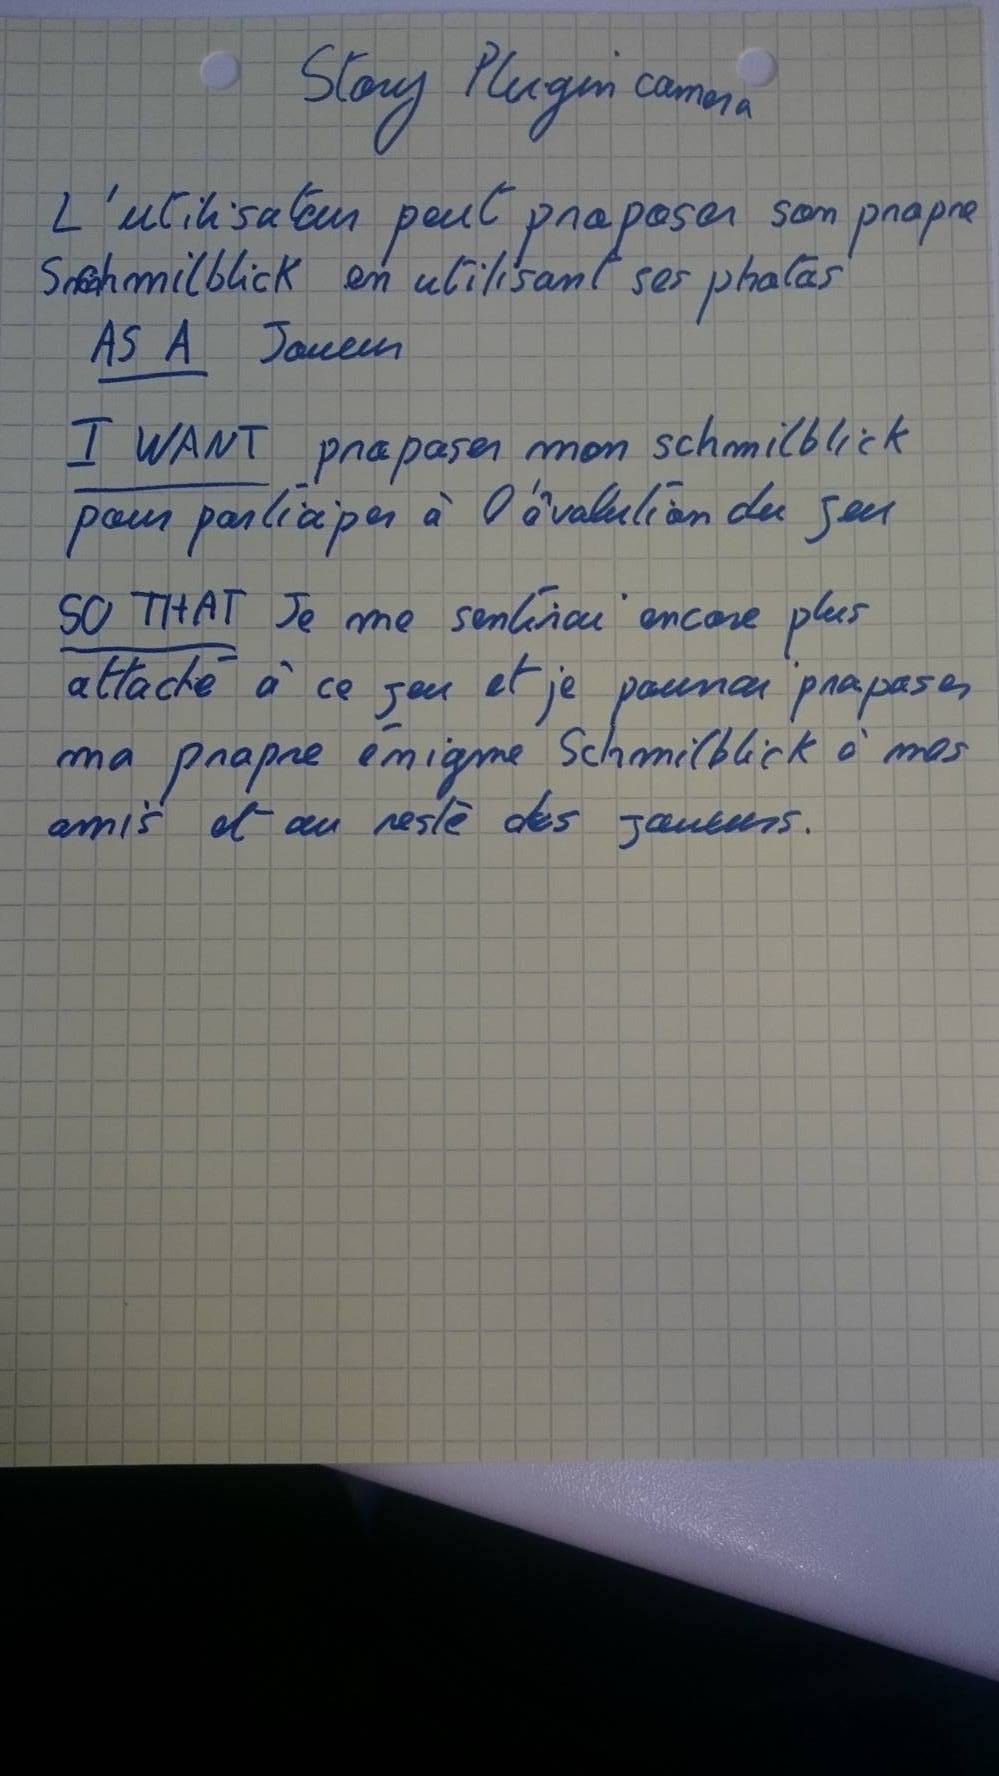 Story Plugin camera
L'utilisateur peut proposer son propre
Schmilblick en utilisant ses photos
AS A Joueur
I WANT proposer mon schmilblick
pour participer à l'évolution du jeu
SO THAT Je me sentirai encore plus
attaché à ce jeu et je pourrai proposer
ma propre énigme Schmilblick à mes
amis et au reste des joueurs.